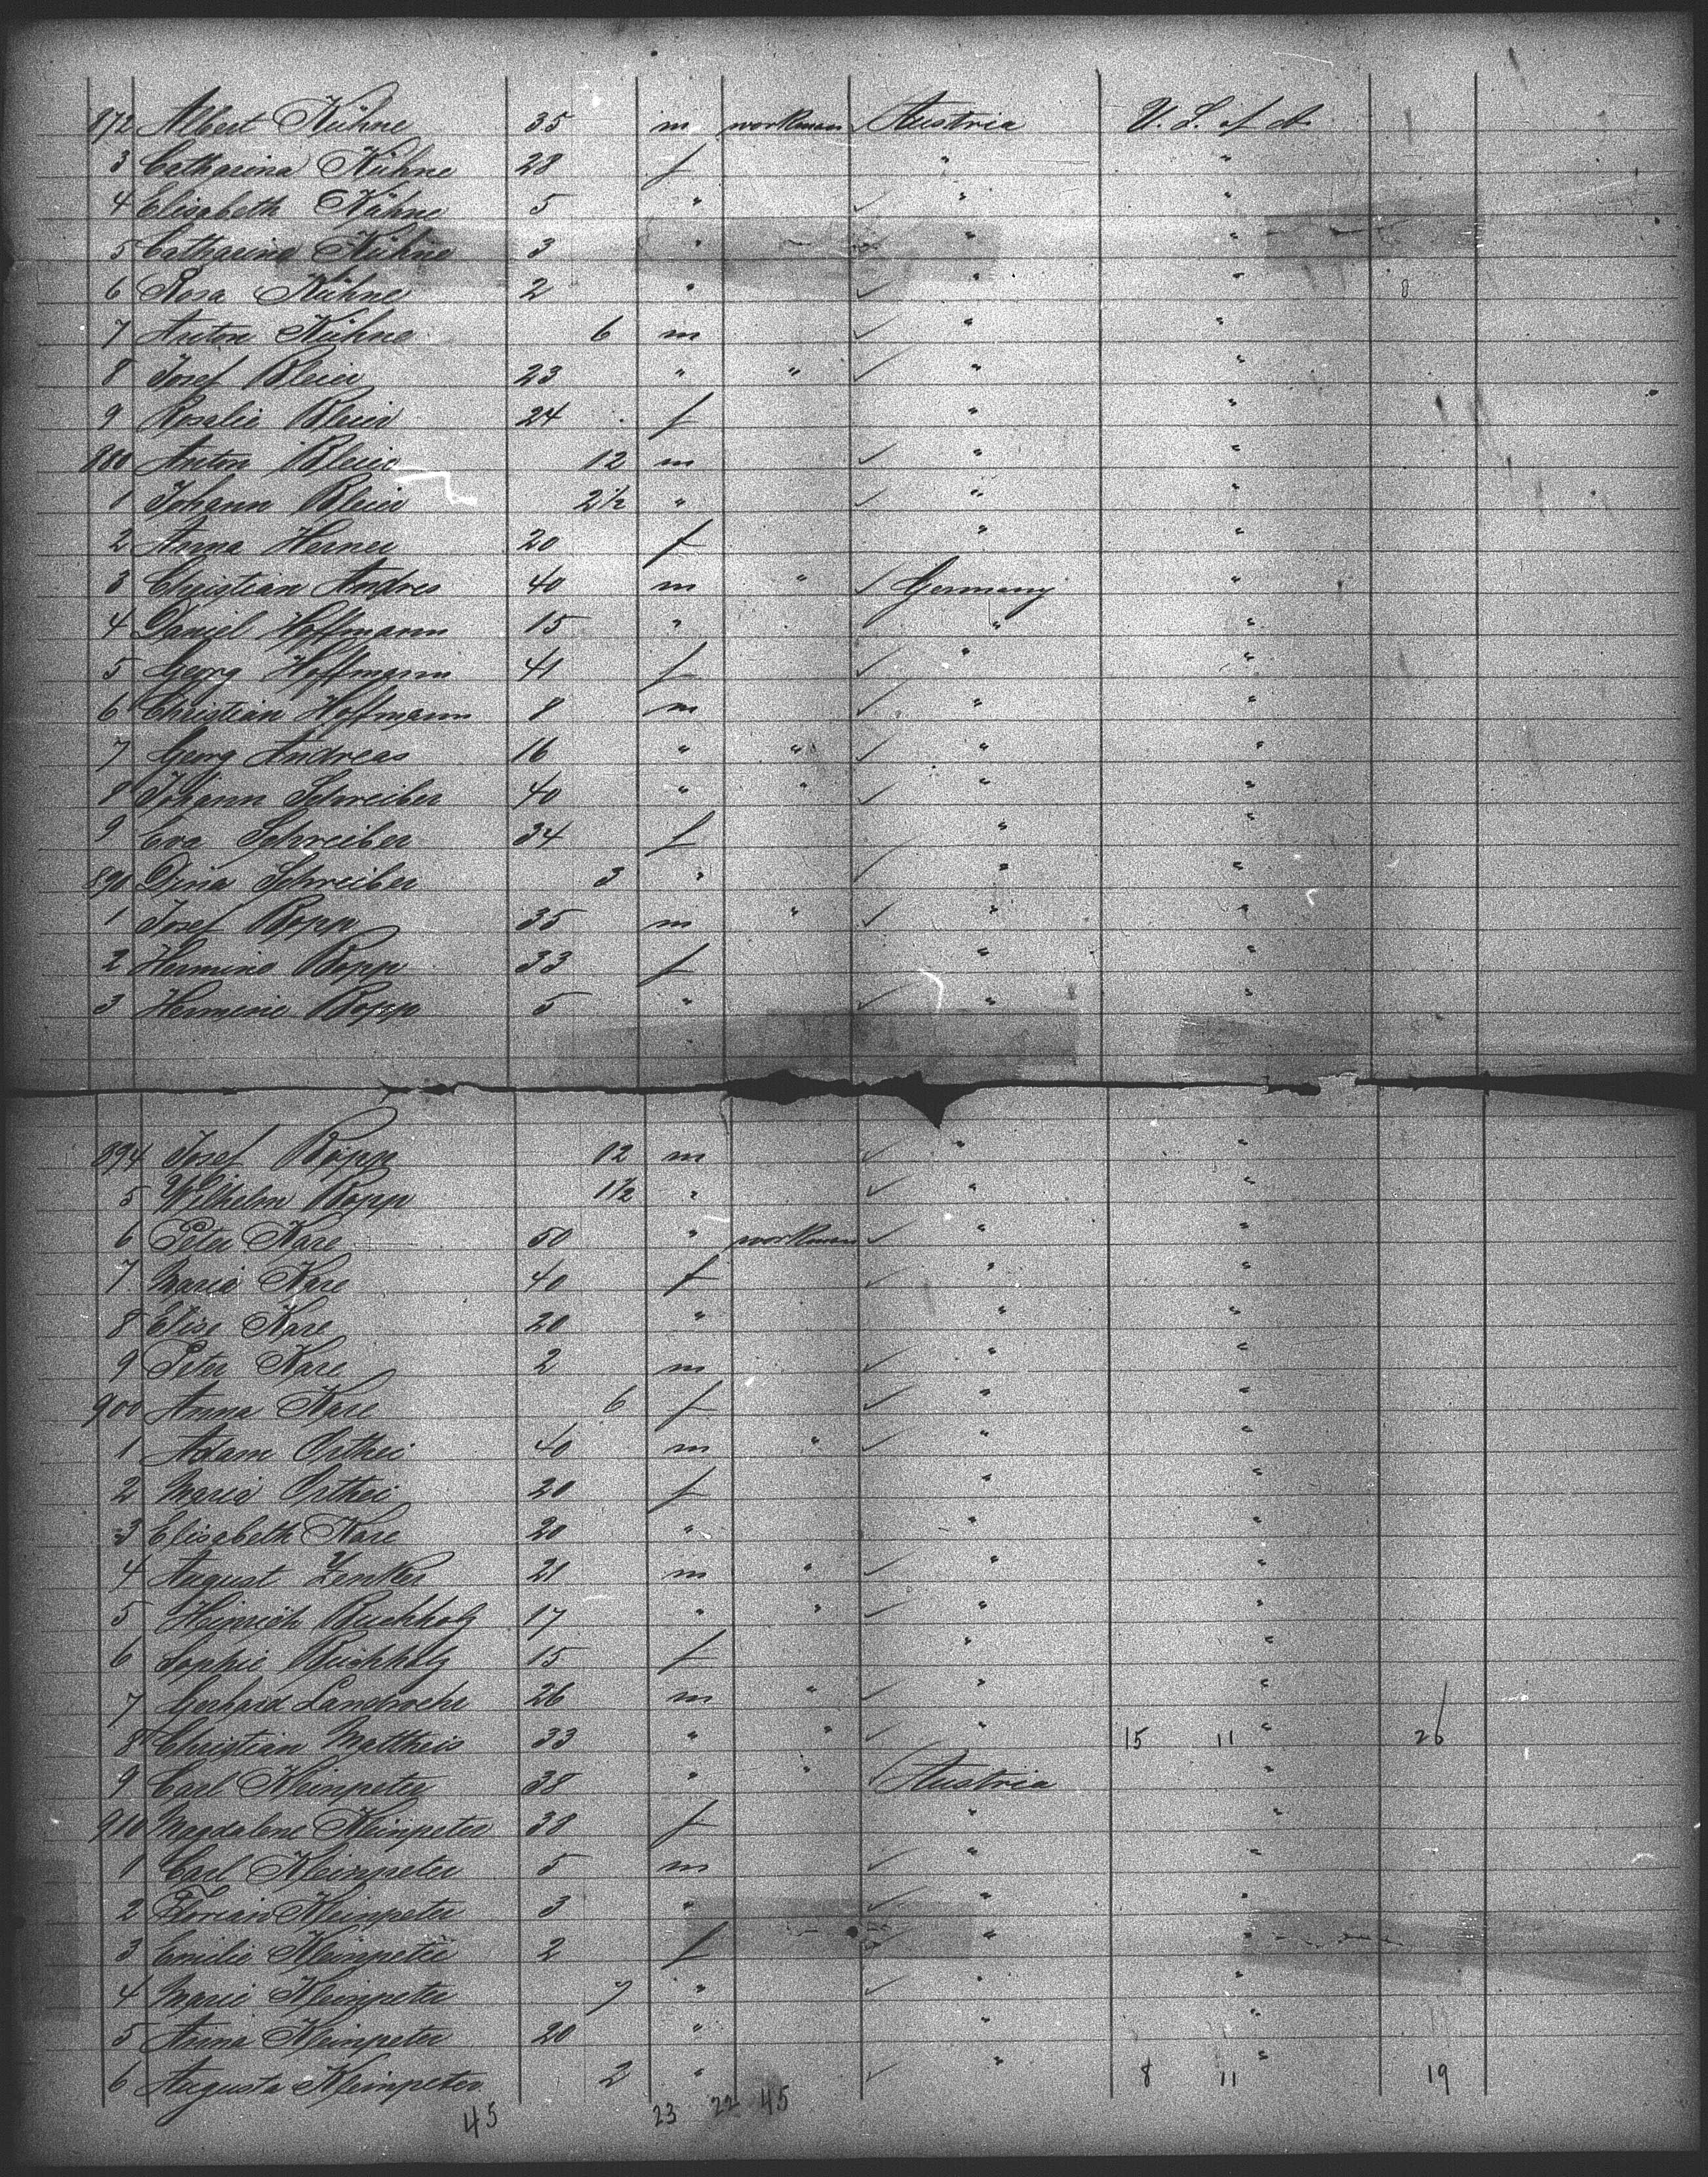 872 Albert Kühne 35 m workman ✓ Austria U. S. of A
3 Catharina Kühne 28 f " "
4 Elisabeth Kühne 5 " ✓ " "
5 Catharina Kühne 3 " " "
6 Rosa Kühne 2 " ✓ " " 8
7 Anton Kühne 6 m ✓ " "
8 Josef Bleier 23 " " ✓ " "
9 Rosalie Bleier 24 f " "
880 Anton Bleier 12 m ✓ " "
1 Johann Bleier 2½ " ✓ " "
2 Anna Herner 20 f " "
3 Christian Andres 40 m " ✓ Germany "
4 Daniel Hoffmann 15 " " "
5 Georg Hoffmann 41 f ✓ " "
6 Christian Hoffmann 8 m ✓ " "
7 Georg Andreas 16 " " ✓ " "
8 Johann Schreiber 40 " " ✓ " "
9 Eva Schreiber 34 f " "
890 Dina Schreiber 3 " ✓ " "
1 Josef Bopp 35 m " ✓ " "
2 Hermine Bopp 33 f " "
3 Hermine Bopp 5 " ✓ " "
894 Josef Bopp 12 m ✓ " "
5 Wilhelm Bopp 1½ " ✓ " "
6 Peter Kare 50 " workman ✓ " "
7 Maria Kare 40 f ✓ " "
8 Elise Kare 20 " " "
9 Peter Kare 2 m ✓ " "
900 Anna Kare 6 f ✓ " "
1 Adam Orthei 40 m " ✓ " "
2 Maria Orthei 20 f " "
3 Elisabeth Kare 20 " " "
4 August Zenker 21 m " ✓ " "
5 Heinrich Buchholz 17 " " ✓ " "
6 Sophie Buchholz 15 f " "
7 Gerhard Landwehr 26 m " ✓ " "
8 Christian Mattheis 33 " " ✓ " 15 11 " 26
9 Carl Kleinpeter 38 " " ✓ Austria "
910 Magdalene Kleinpeter 30 f " "
1 Carl Kleinpeter 5 m ✓ " "
2 Florian Kleinpeter 3 " ✓ " "
3 Emilie Kleinpeter 2 f ✓ " "
4 Marie Kleinpeter 7 " ✓ " "
5 Anna Kleinpeter 20 " " "
6 Augusta Kleinpeter 2 " ✓ " 8 11 " 19
45 23 22 45